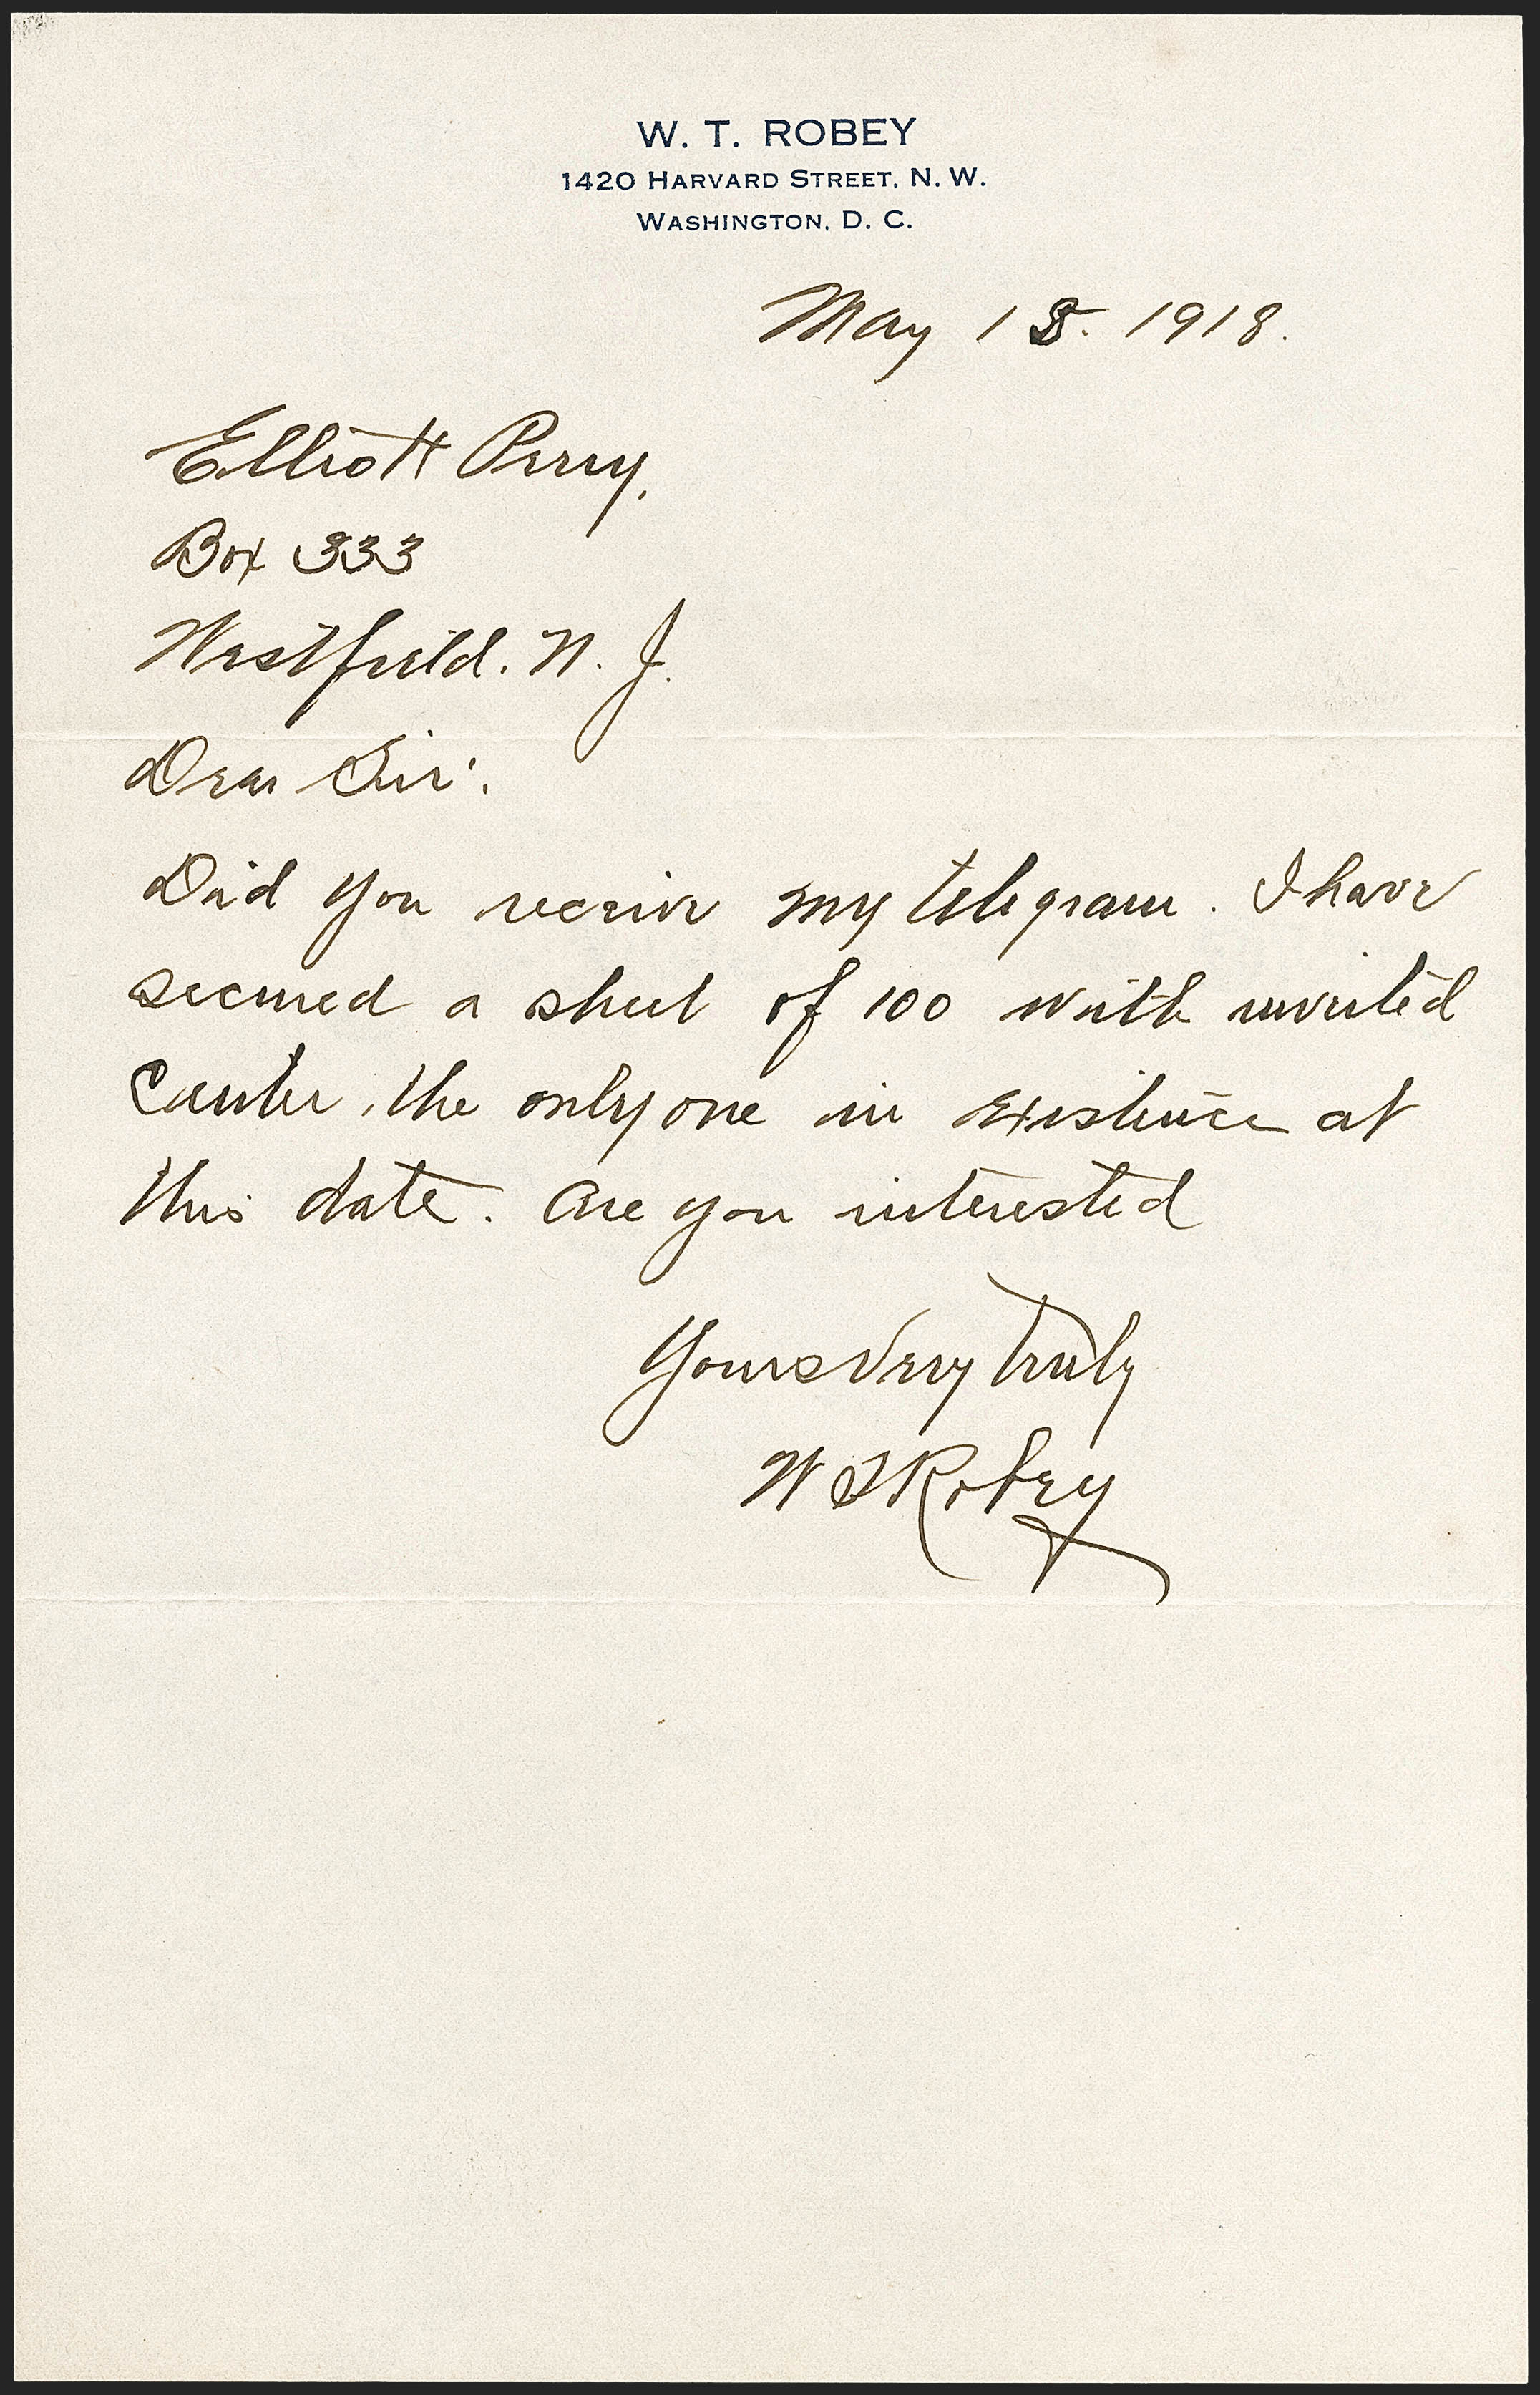 W. T. ROBEY
1420 HARVARD STREET, N. W.
WASHINGTON, D. C.
May 15. 1918.
Elliott Perry,
Box 333
Westfield. N. J.
Dear Sir:
Did you receive my telegram. I have
secured a sheet of 100 with inverted
Center, the only one in existence at
this date. Are you interested
Yours Very truly
W T Robey